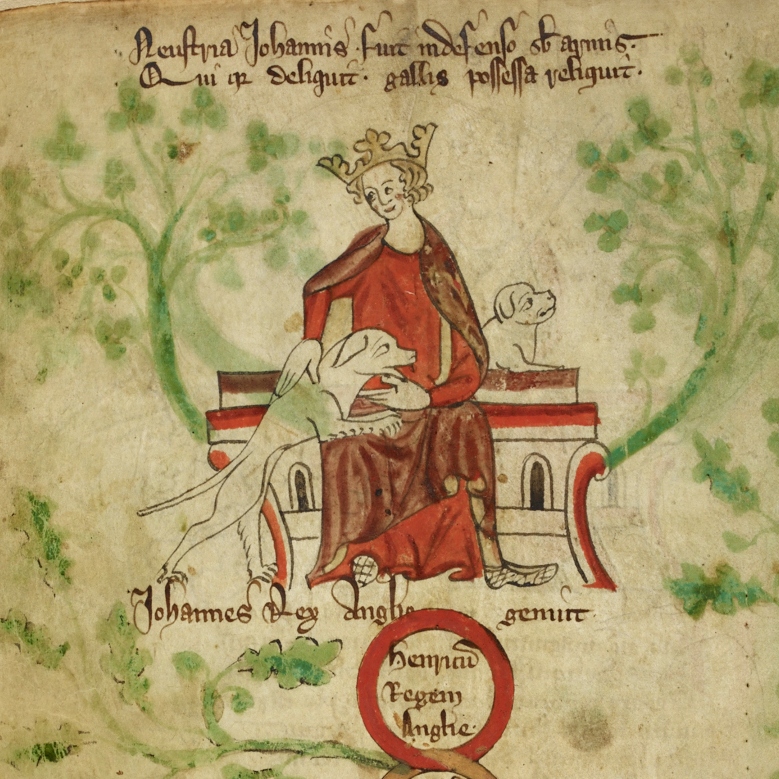 Neustria Johannis fuit indefenso sb armis.
Qui qr deliquit. gallis possessa reliquit.
Johannes Rex Anglie genuit
henricu
Regem
Anglie.